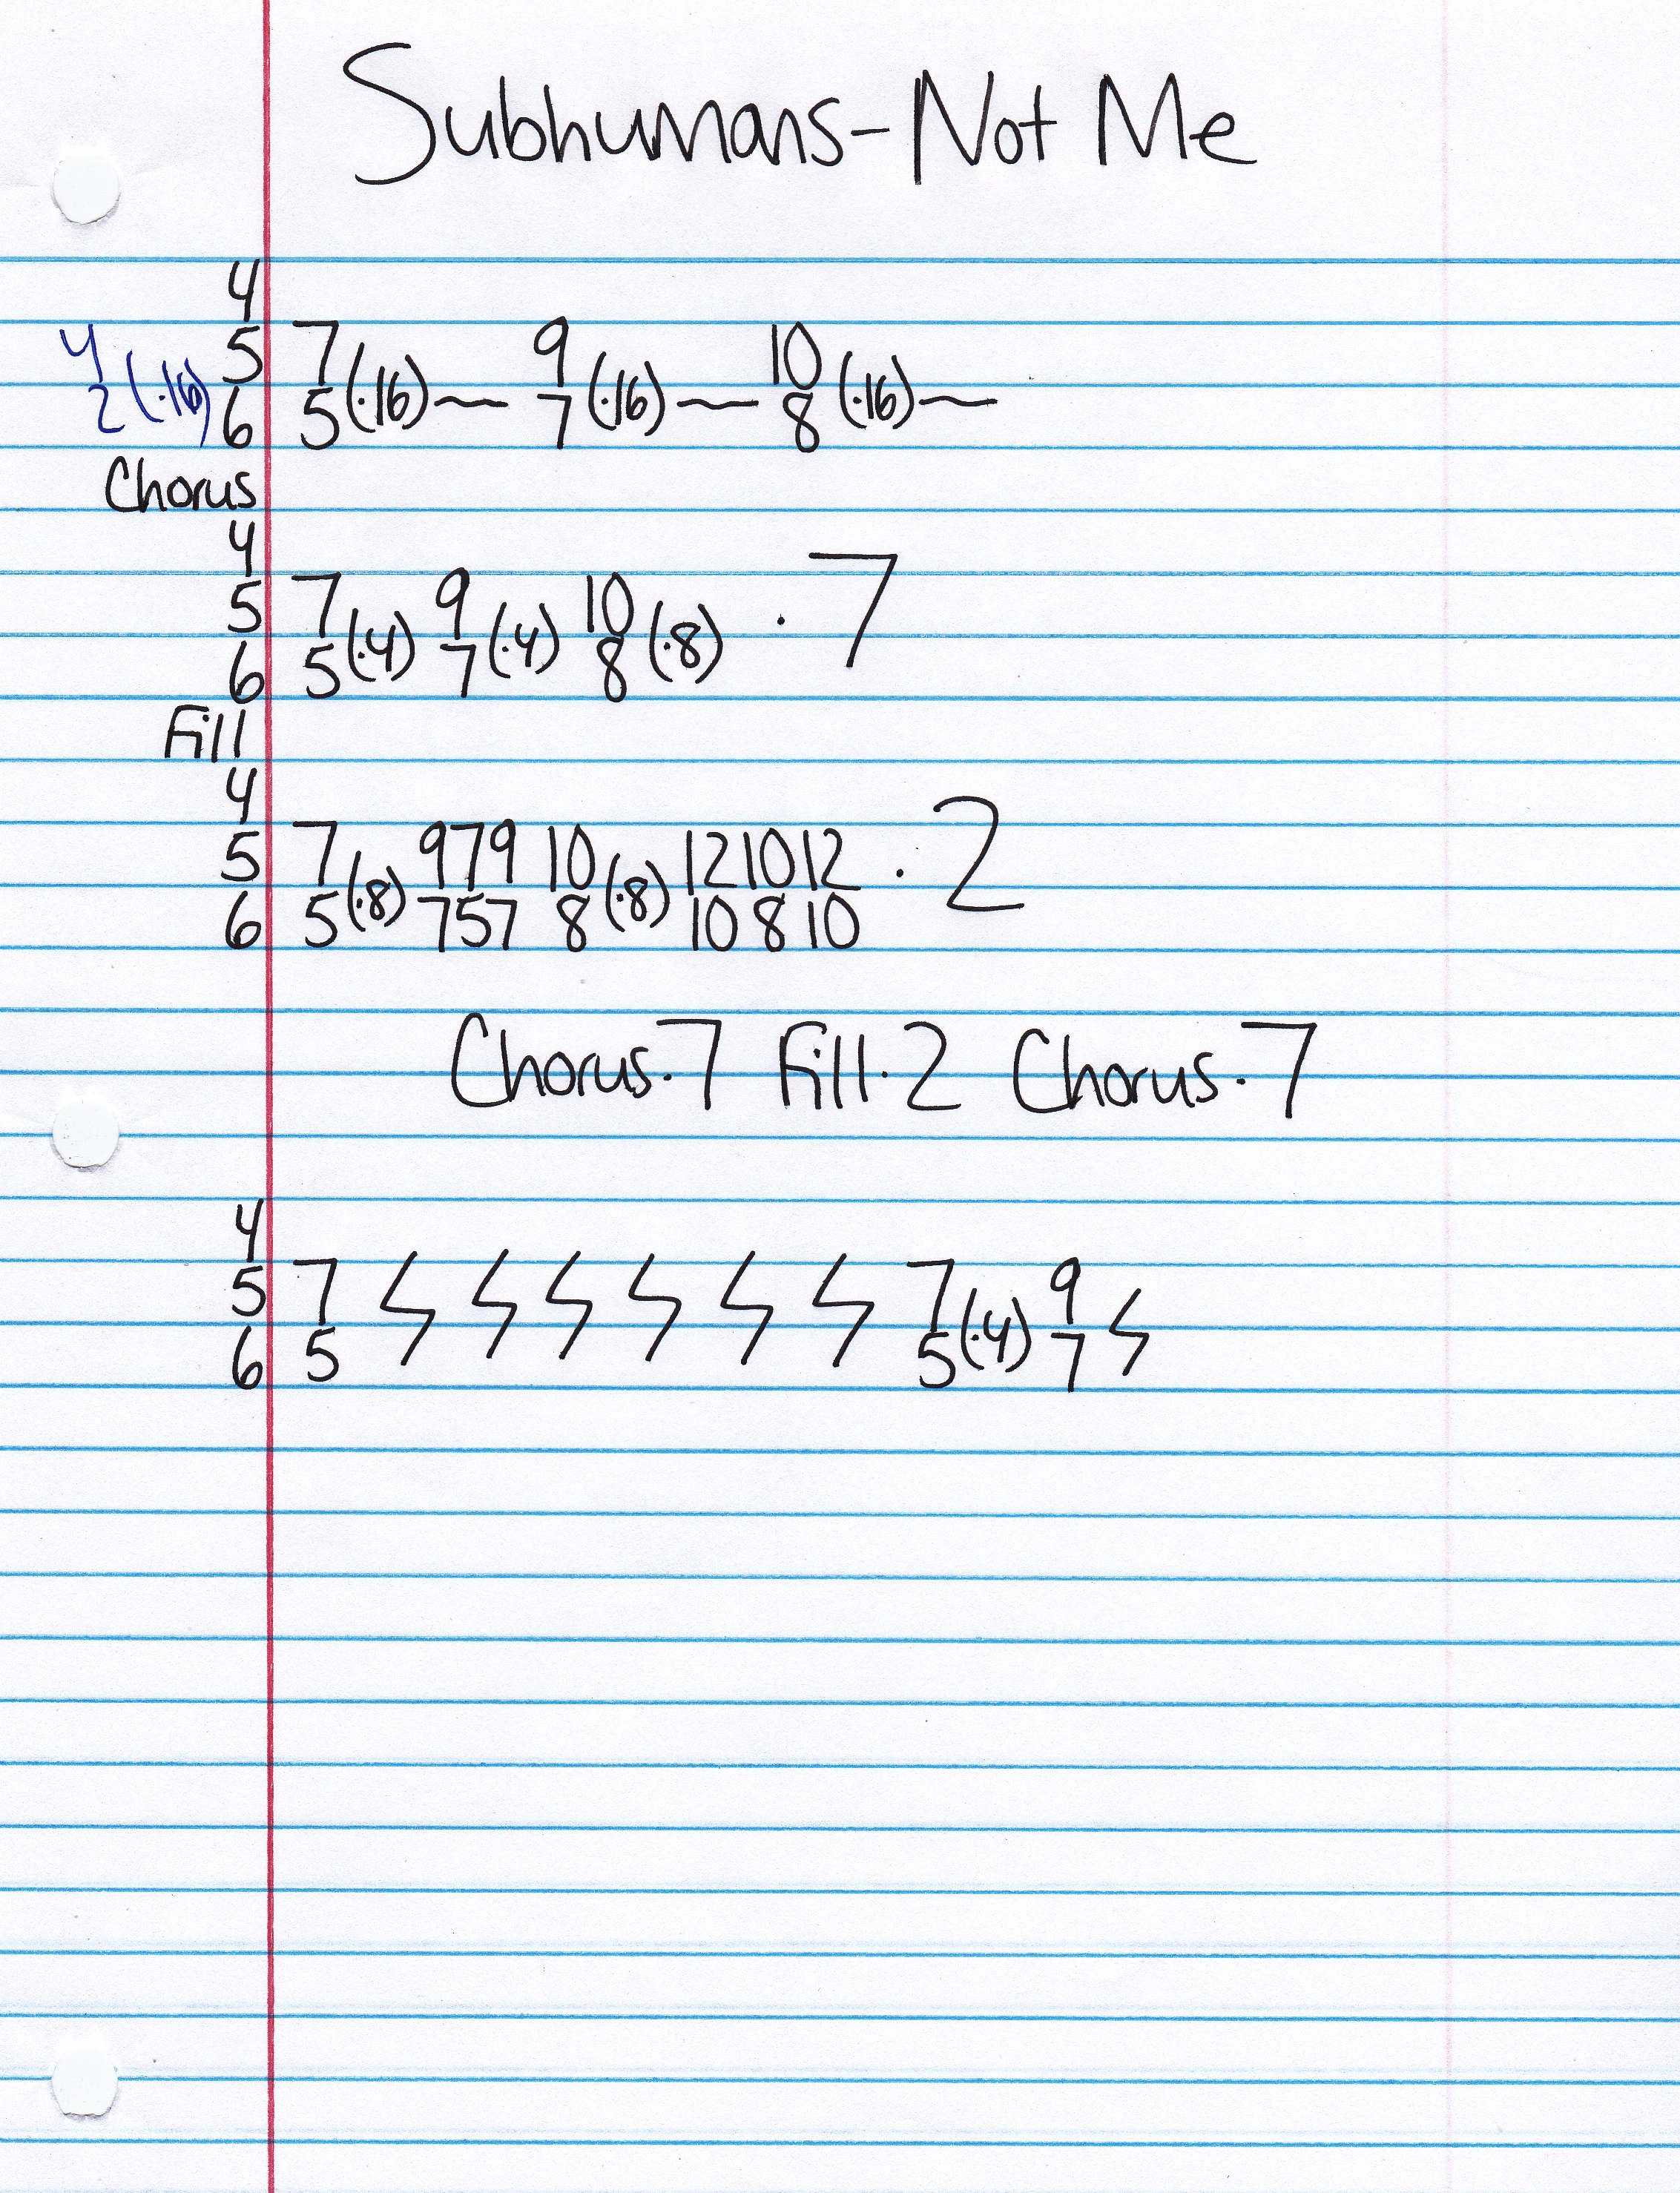 Subhumans-Not Me
4
4 5 7 9 10
2 (·16) 6 5 (·16) — 7 (·16) — 8 (·16) —
Chorus
4
5 7 9 10
6 5 (·4) 7 (·4) 8 (·8) · 7
Fill
4
5 7 9 7 9 10 12 10 12
6 5 (·8) 7 5 7 8 (·8) 10 8 10 · 2
Chorus·7 Fill·2 Chorus·7
4
5 7 7 9
6 5 5 (·4) 7